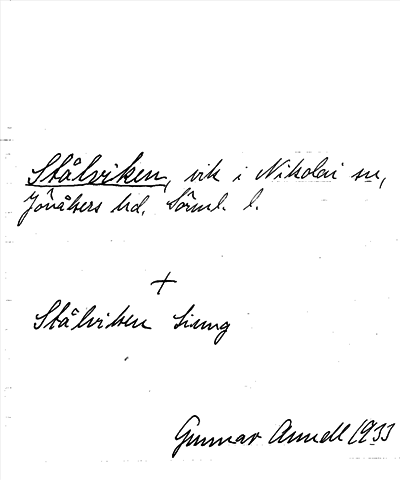 Stålviken, vik i Nikolai sn,
Jönåkers hd. Sörml. l.
+
Stålviken
Gunnar Annell 1933